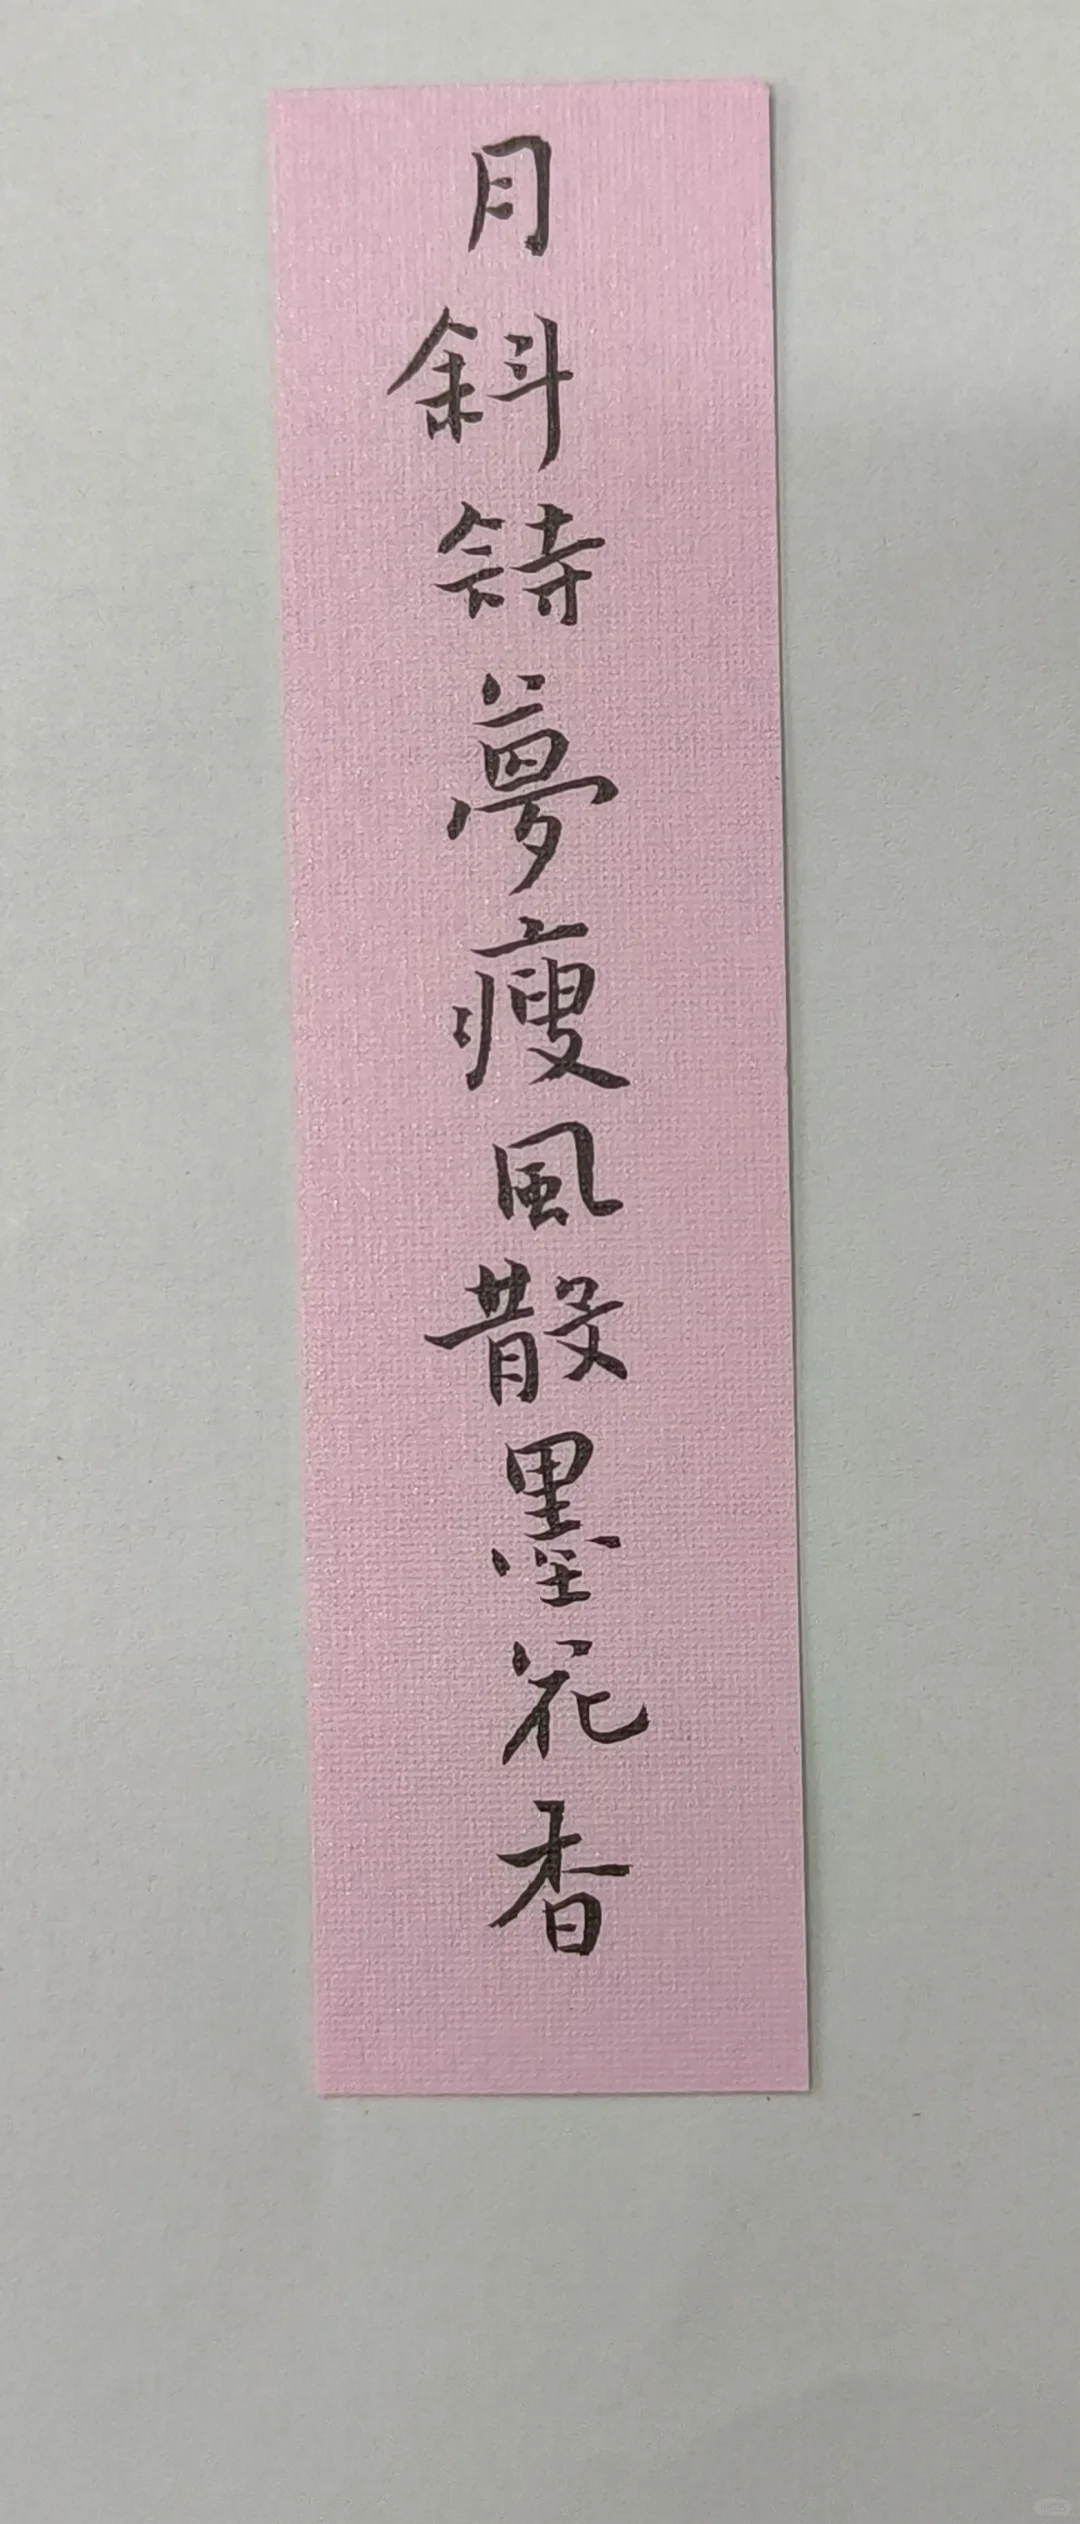 月斜詩夢瘦風散墨花香